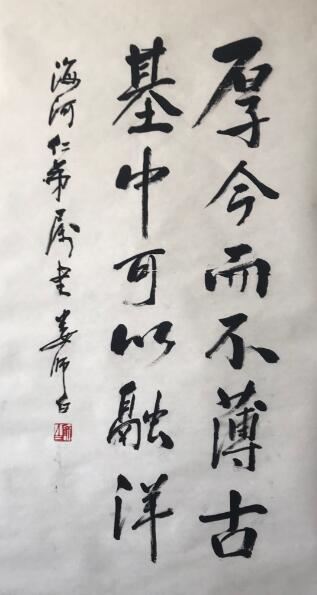 厚今而不薄古
基中可以融洋
海河仁弟属书 娄师白